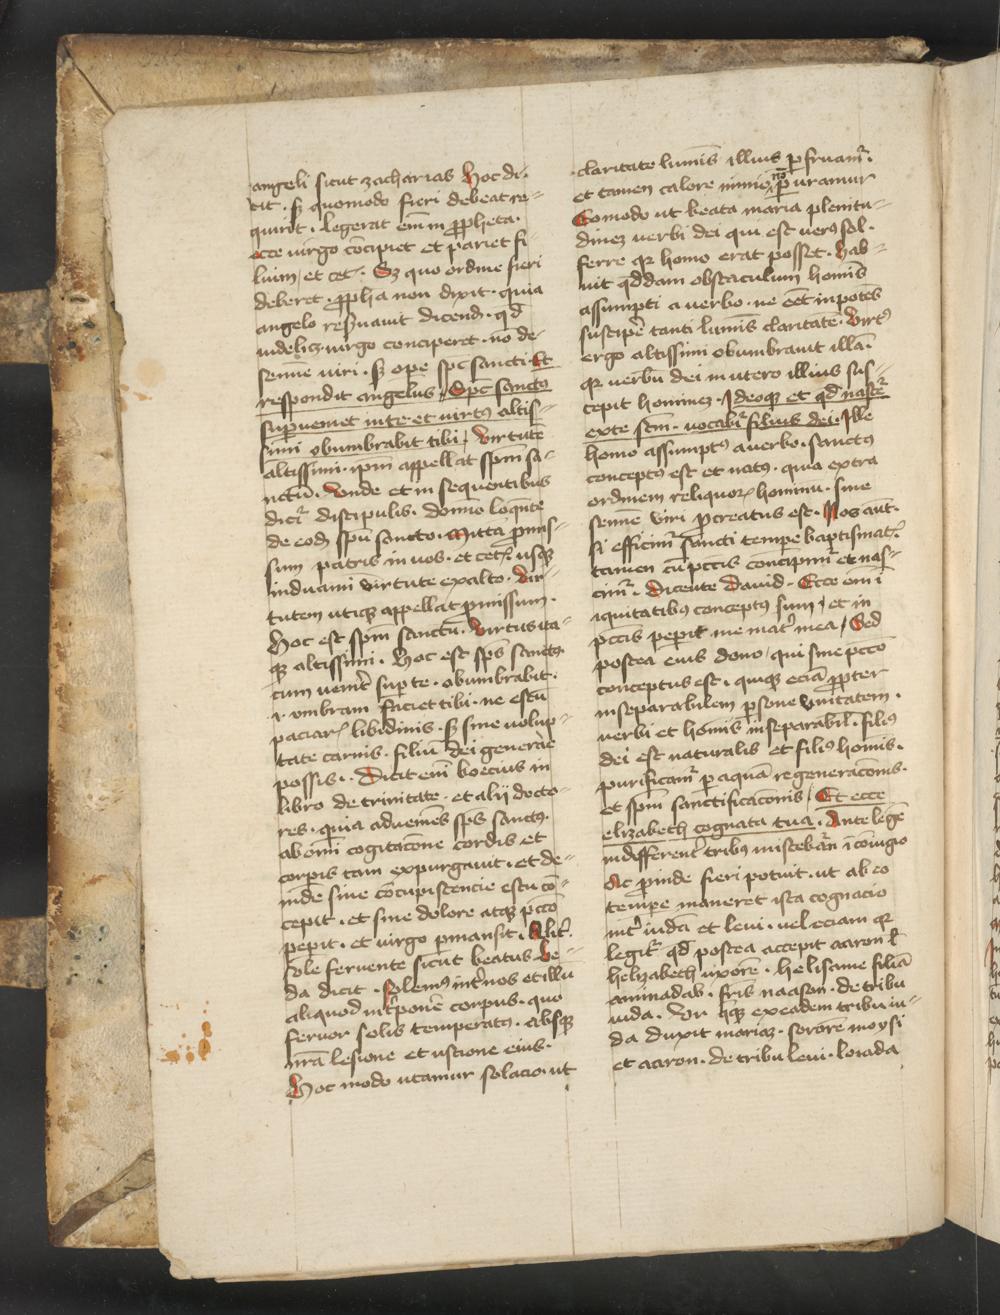 angeli sicut zacharias Hoc di-
cit . sꝫ quomodo fieri debeat re-
quirit . legerat em̄ in ꝓpheta .
ecce uirgo cōcipiet et pariet fi-
lium / et cetꝰ . Sꝫ quo ordine fieri
deberet . ꝓpha non dixit . quia
angelo reẜuauit dicend̄ . qd̄
uidelicꝫ uirgo conciperet . nō de
semīe uiri . sꝫ ope spc̄ sancti . Et
respondit angelus / Spc̄ sanctꝰ
suꝑueniet in te et uirtꝰ altis-
simi obumbrabit tibi / Virtutē
altissimi . ip̄m appellat spm̄ sa-
nctū . Vnde et in sequentibus
dicit̄ discipulis . domīo loq̄nte
de eod̄ spū sancto . Mitta ꝓmis-
sum patris in uos . et cetꝰ . usqꝫ
induami virtute ex alto . Vir-
tutem utiqꝫ appellat ꝓmissum .
Hoc est spm̄ sanctū . Virtus ita-
qꝫ altissimi . Hoc est spc̄ sanctꝰ
cum uenit̄ suꝑ te . obumbrabit .
.i. umbram faciet tibi . ne estū
paciarꝭ libidinis . sꝫ sine uolup-
tate carnis . filiū dei gen̄are
possis . Dicit em̄ boecius in
libro de trinitate . et alij docto-
res . quia adueniēs spc̄ sanctꝰ .
ab om̄i cogitacōne cordis et
corpis tam expurgauit . et de-
inde sine cōcupiscencie estu cō-
cepit . et sine dolore atqꝫ pccō
peperit . et uirgo ꝑmansit . Alit̄
sole feruente sicut beatus be-
da dicit . Solemꝰ int̄ nos et illū
aliquod int̄ponē corpus . quo
feruor solis temperatꝰ . absqꝫ
nrā lesione et ustione eius .
Hoc modo utamur solacio . ut
claritate lumīs illius ꝑfruamꝰ .
et tamen calore nimio nō ꝑuramur
Eomodo ut beata maria plenitu-
dineꝫ uerbi dei qui est uerꝰ sol .
ferre qꝛ homo erat posset . hab-
uit qd̄dam obstaculum homīs
assumpti a uerbo . ne eēt inpotēs
suscipē tanti lumīs claritatē . Virtꝰ
ergo altissimi obumbrauit illā .
qꝛ uerbū dei in utero illius sus-
cepit homineꝫ . Ideoqꝫ et qd̄ nascet̄
ex te scm̄ . uocabit̄ filius dei . Ille
homo assumptꝰ a uerbo . sanctꝰ
conceptꝰ est et natꝰ . quia extra
ordinem reliquorꝝ hominū . sine
semīe viri ꝓcreatus est . Nos aut̄ .
si efficimꝰ sancti tempe baptismatꝭ .
tamen cū pccīs concipimꝰ et nas-
cimꝰ . Dicente Dauid . Ecce em̄ ī
iquitatibꝰ conceptꝰ sum / et in
pccīs peperit me mat̄ mea / Sed
postea eius dono / qui sine pccō
conceptus est . quiqꝫ eciā ꝓpter
inseparabilem ꝑsone vnitatem .
uerbi et homīs inseparabil̄ . filiꝰ
dei est naturalis et filiꝰ homīs .
purificamꝰ ꝑ aquā regeneracōnis .
et spm̄ sanctificacōnis / Et ecce
elizabeth cognata tua . Ante legē
indifferent̄ tribꝰ miscebāt̄ ī cōiugio
Ac ꝓinde fieri potuit . ut ab eo
tempe maneret ista cognacio
int̄ iudā et leui . uel eciam qꝛ
legit̄ qd̄ postea accepit aaron
helizabeth uxorē . helisame filiā
aminadab . frīs naason . de tribu
iuda . Vr̄ qꝫ ex eadem tribu iu-
da duxit mariaꝫ . sororē moysi
et aaron . de tribu leui . Ioiada